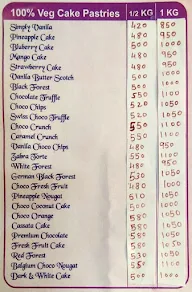 100% Veg Cake Pastries 1/2 KG 1 KG
Simply Vanila 420 850
Pineapple Cake 480 950
Bluberry Cake 500 1000
Mango Cake 480 950
Strawberry Cake 480 950
Vanila Butter Scotch 500 1000
Black Forest 500 1000
Chocolate Truffle 550 1100
Choco Chips 520 1050
Swiss Choco Truffle 520 1050
Choco Crunch 550 1100
Caramel Crunch 550 1100
Vanila Choco Chips 480 950
Zabra Torte 550 1100
White Forest 480 950
German Black Forest 530 1050
Choco Fresh Fruit 480 1000
Pineapple Nougat 510 1050
Choco Coconut Cake 500 1000
Choco Orange 580 1050
Cassata Cake 580 1050
Premium Chocolate 580 1050
Fresh Fruit Cake 580 1050
Red Forest 530 1050
Belgium Choco Nougat 550 1100
Dark & White Cake 500 1000